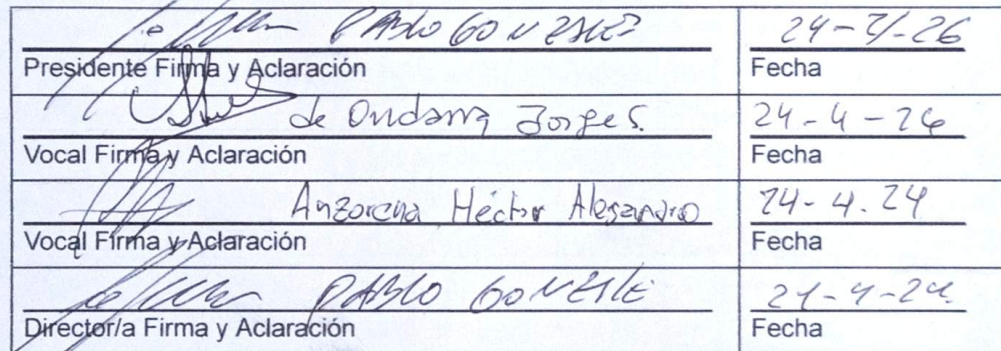 PABLO GONZALEZ 24-4-26
Presidente Firma y Aclaración Fecha
de Ondarra Jorge S. 24-4-26
Vocal Firma y Aclaración Fecha
Anzorena Héctor Alejandro 24-4.24
Vocal Firma y Aclaración Fecha
PABLO GONZALE 24-4-24
Director/a Firma y Aclaración Fecha